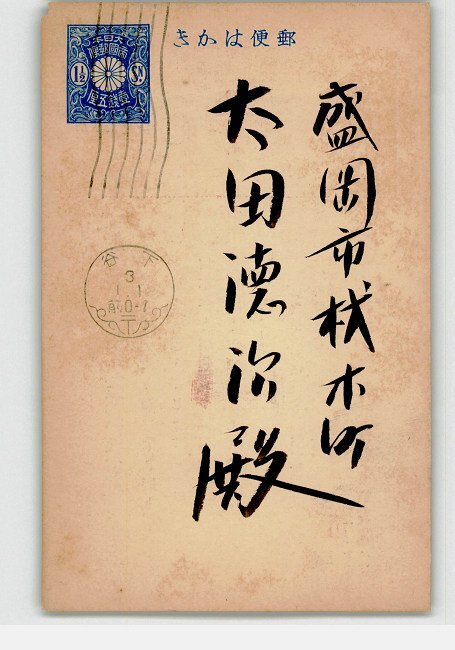 郵便はかき
大日本
帝國郵便
1½ Sn
壹錢五厘
盛岡市材木町
太田德治殿
下谷
3
1.1
前0-7